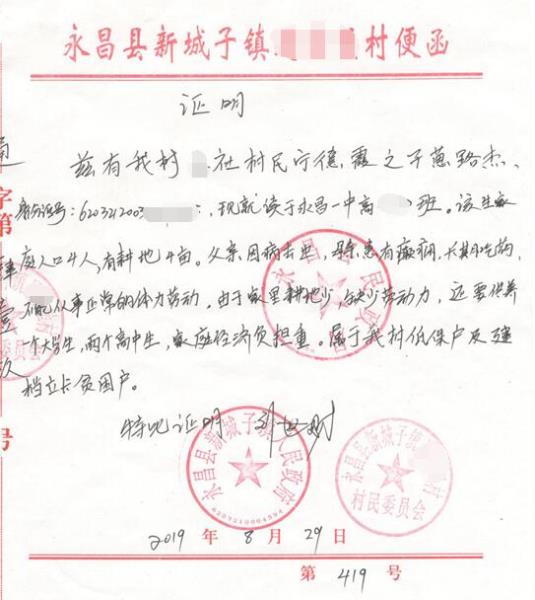 永昌县新城子镇 村便函
证明
兹有我村 社村民宁德霞之子葸路杰、
身份证号:6203212003 ,现就读于永昌一中高 班。该生家
庭人口4人,有耕地4亩。父亲因病去世,母亲患有癫痫,长期吃药,
不能从事正常的体力劳动。由于家里耕地少,缺少劳动力,还要供养
一个大学生,两个高中生,家庭经济负担重。属于我村低保户及建
档立卡贫困户。
特此证明
永昌县新城子镇人民政府
永昌县新城子镇人民政府
永昌县新城子镇 村
村民委员会
2019 年 8 月 29 日
第 419 号
字第
号